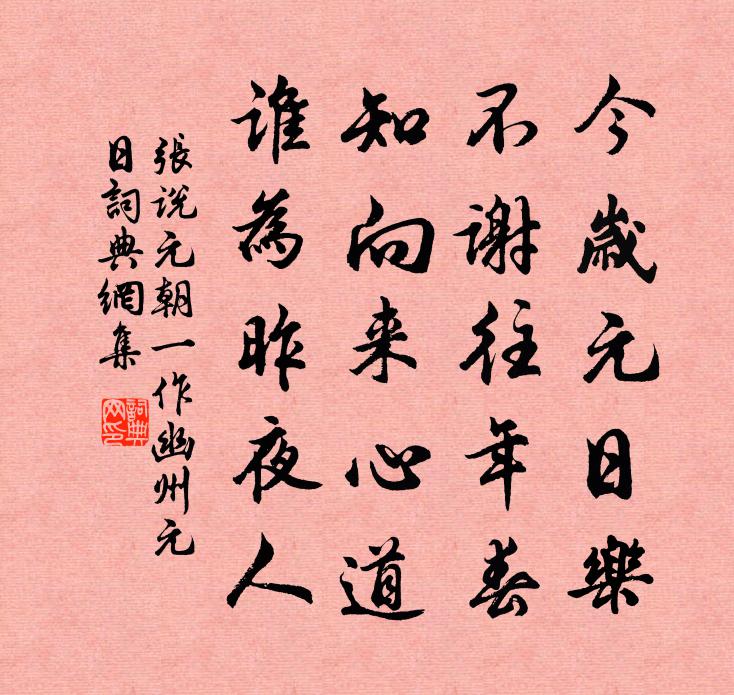 今歲元日樂
不謝往年春
知向来心道
誰為昨夜人
張説元朝一作幽州元
日詞典網集
詞典网印